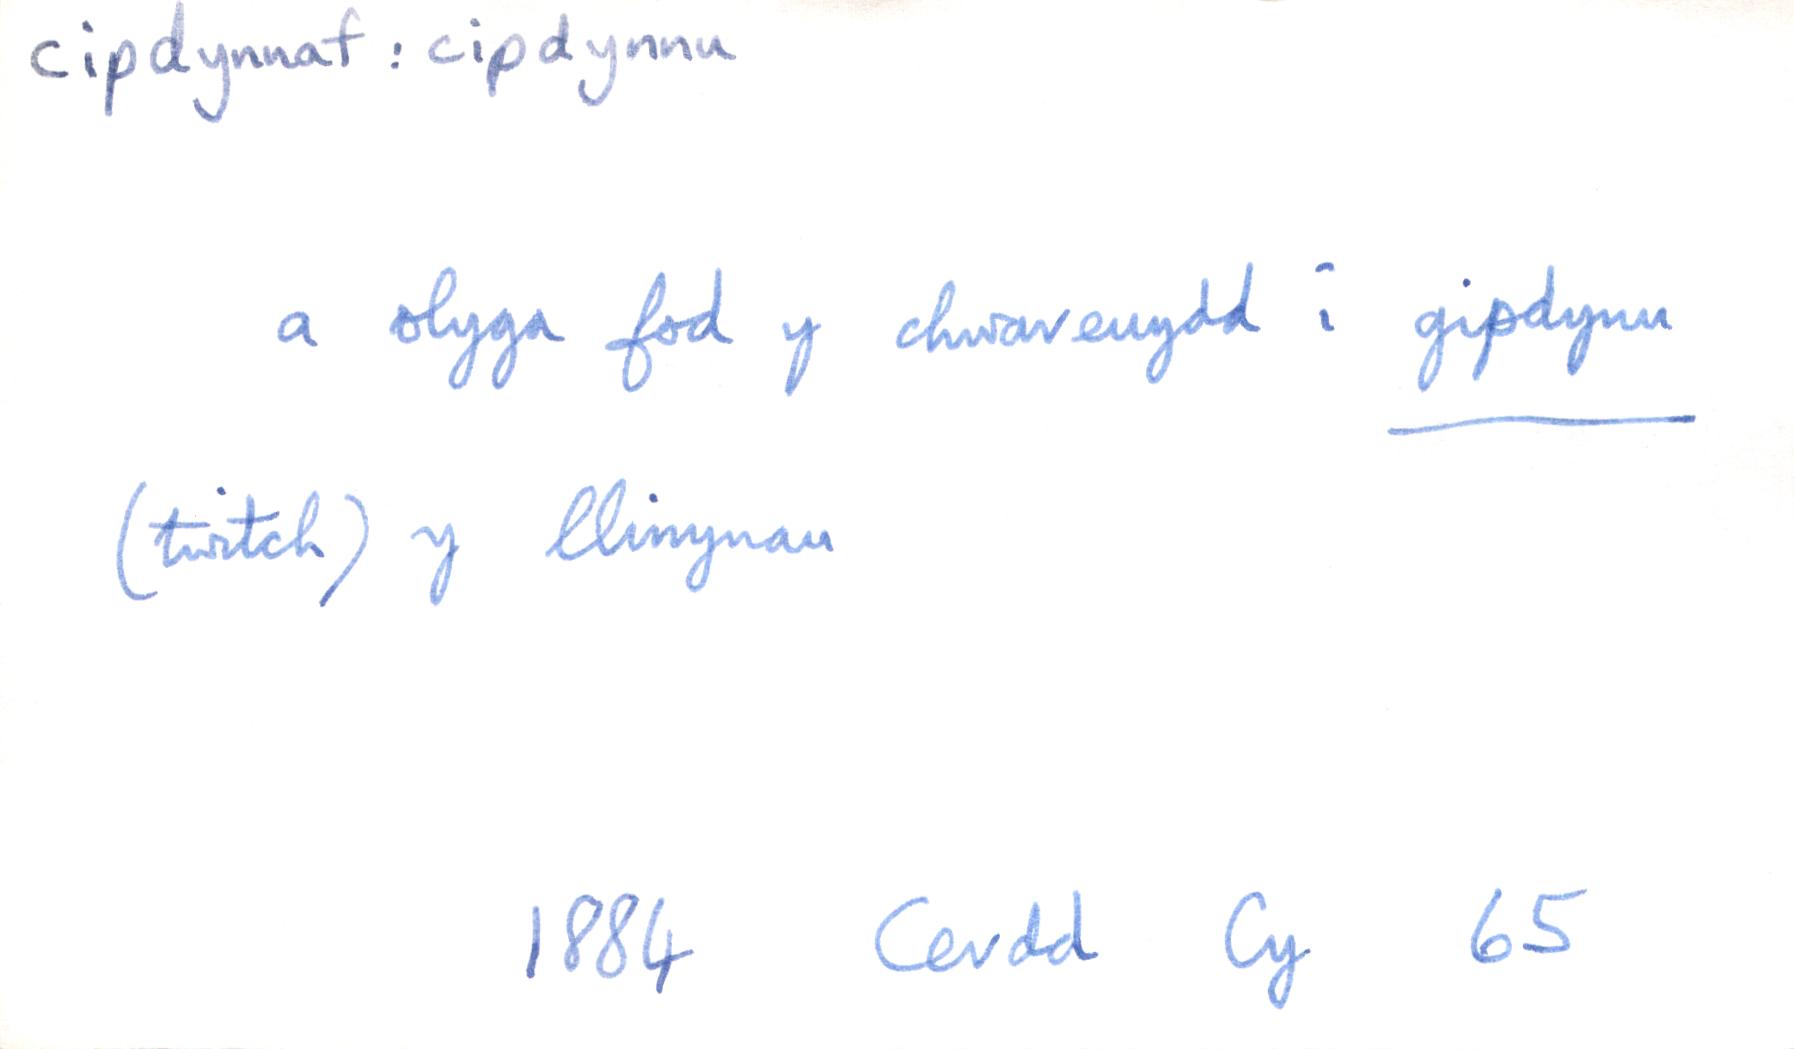 cipdynnaf : cipdynnu
a olyga fod y chwareuydd i gipdynu
(twitch) y llinynau
1884 Cerdd Cy 65